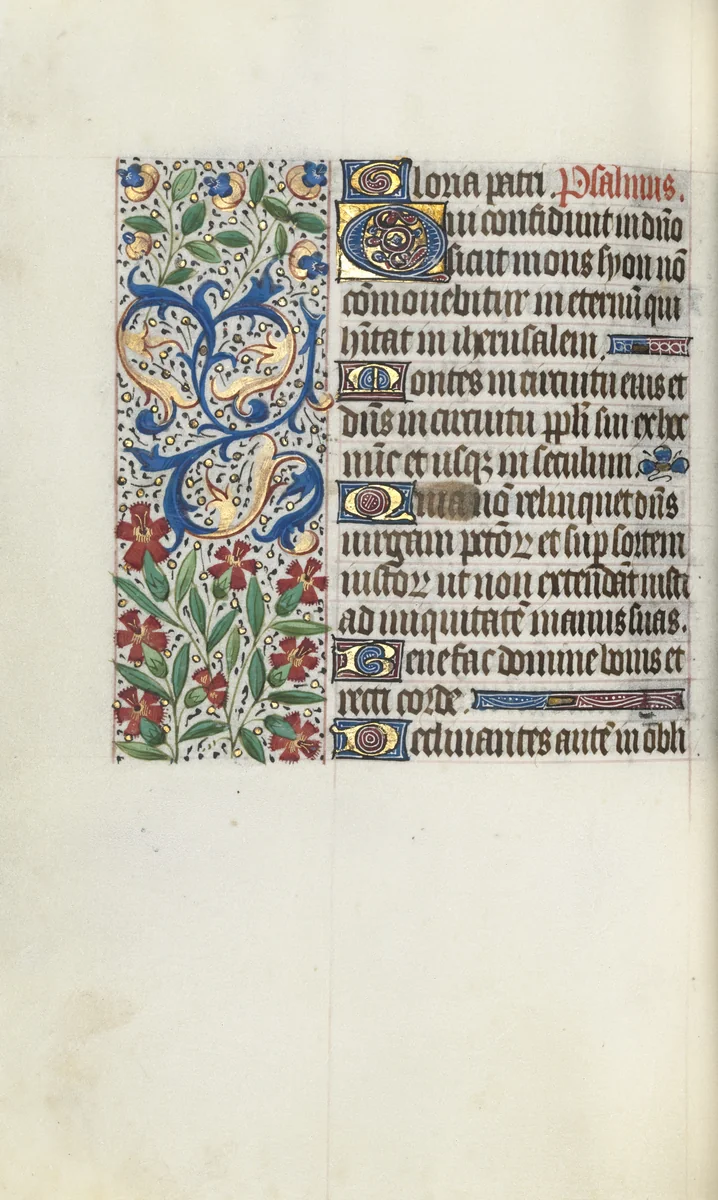 Gloria patri. Psalmus.
Qui confidunt in dño
sicut mons syon nõ
cõmouebitur in eternũ qui
hĩtat in iherusalem.
Montes in circuitu eius et
dñs in circuitu ppłi sui ex hoc
nũc et usqz in seculum.
Quia nõ relinquet dñs
uirgam pctõꝝ et sup sortem
iustoꝝ ut non extendãt iusti
ad iniquitatẽ manus suas.
Benefac domine bonis et
recti corde.
Declinantes autẽ in õbli